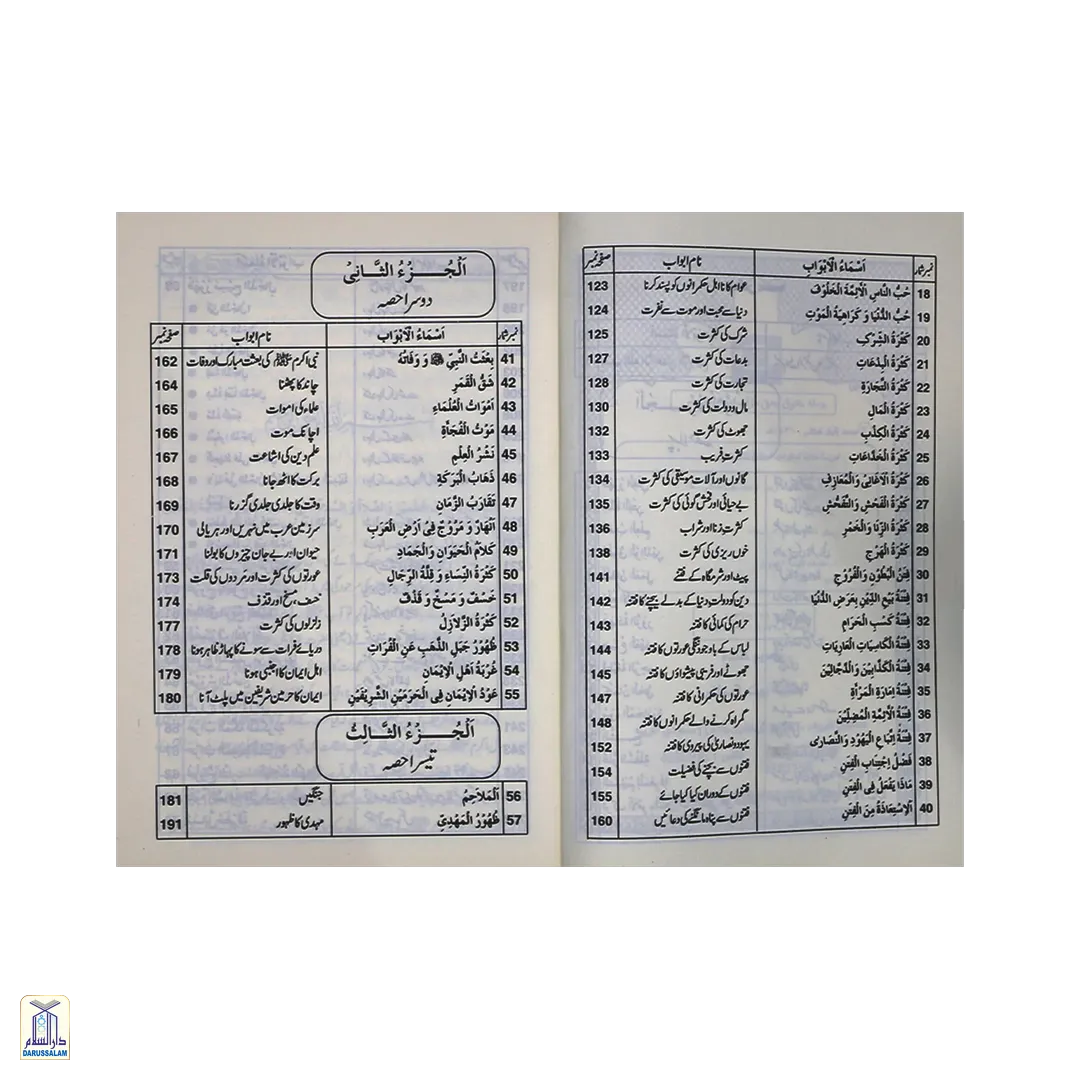 نمبر شمار اَسْمَاءُ الْاَبْوَابِ نام ابواب صفحہ نمبر
18 حُبُّ النَّاسِ الْاَئِمَّةَ الْخَلُوْفَ عوام کا نااہل حکمرانوں کو پسند کرنا 123
19 حُبُّ الدُّنْيَا وَ كَرَاهِيَةُ الْمَوْتِ دنیا سے محبت اور موت سے نفرت 124
20 كَثْرَةُ الشِّرْكِ شرک کی کثرت 125
21 كَثْرَةُ الْبِدْعَاتِ بدعات کی کثرت 127
22 كَثْرَةُ التِّجَارَةِ تجارت کی کثرت 128
23 كَثْرَةُ الْمَالِ مال و دولت کی کثرت 130
24 كَثْرَةُ الْكِذْبِ جھوٹ کی کثرت 132
25 كَثْرَةُ الْخَدَّاعَاتِ کثرت فریب 133
26 كَثْرَةُ الْاَغَانِىْ وَالْمَعَازِفِ گانوں اور آلات موسیقی کی کثرت 134
27 كَثْرَةُ الْفَحْشِ وَالتَّفَحُّشِ بے حیائی اور فحش گوئی کی کثرت 135
28 كَثْرَةُ الزِّنَا وَالْخَمْرِ کثرت زنا اور شراب 136
29 كَثْرَةُ الْهَرْجِ خوں ریزی کی کثرت 138
30 فِتَنُ الْبُطُوْنِ وَالْفُرُوْجِ پیٹ اور شرمگاہ کے فتنے 141
31 فِتْنَةُ بَيْعِ الدِّيْنِ بِعَرَضِ الدُّنْيَا دین کو دولت دنیا کے بدلے بیچنے کا فتنہ 142
32 فِتْنَةُ كَسْبِ الْحَرَامِ حرام کی کمائی کا فتنہ 143
33 فِتْنَةُ الْكَاسِيَاتِ الْعَارِيَاتِ لباس کے باوجود ننگی عورتوں کا فتنہ 144
34 فِتْنَةُ الْكَذَّابِيْنَ وَالدَّجَّالِيْنَ جھوٹے اور فریبی پیشواؤں کا فتنہ 145
35 فِتْنَةُ اِمَارَةِ الْمَرْأَةِ عورتوں کی حکمرانی کا فتنہ 147
36 فِتْنَةُ الْاَئِمَّةِ الْمُضِلِّيْنَ گمراہ کرنے والے حکمرانوں کا فتنہ 148
37 فِتْنَةُ اِتِّبَاعِ الْيَهُوْدِ وَالنَّصَارٰى یہود و نصاریٰ کی پیروی کا فتنہ 152
38 فَضْلُ اِجْتِنَابِ الْفِتَنِ فتنوں سے بچنے کی فضیلت 154
39 مَاذَا يَفْعَلُ فِى الْفِتَنِ فتنوں کے دوران کیا کیا جائے 155
40 اَلْاِسْتِعَاذَةُ مِنَ الْفِتَنِ فتنوں سے پناہ مانگنے کی دعائیں 160
اَلْجُزْءُ الثَّانِىْ
دوسرا حصہ
نمبر شمار اَسْمَاءُ الْاَبْوَابِ نام ابواب صفحہ نمبر
41 بِعْثَتُ النَّبِيِّ ﷺ وَ وَفَاتُهُ نبی اکرم ﷺ کی بعثت مبارک اور وفات 162
42 شَقُّ الْقَمَرِ چاند کا پھٹنا 164
43 اَمْوَاتُ الْعُلَمَاءِ علماء کی اموات 165
44 مَوْتُ الْفُجَأَةِ اچانک موت 166
45 نَشْرُ الْعِلْمِ علم دین کی اشاعت 167
46 ذَهَابُ الْبَرَكَةِ برکت کا اٹھ جانا 168
47 تَقَارُبُ الزَّمَانِ وقت کا جلدی جلدی گزرنا 169
48 اَنْهَارٌ وَ مُرُوْجٌ فِىْ اَرْضِ الْعَرَبِ سرزمین عرب میں نہریں اور ہریالی 170
49 كَلَامُ الْحَيَوَانِ وَالْجَمَادِ حیوان اور بے جان چیزوں کا بولنا 171
50 كَثْرَةُ النِّسَاءِ وَ قِلَّةُ الرِّجَالِ عورتوں کی کثرت اور مردوں کی قلت 173
51 خَسْفٌ وَ مَسْخٌ وَ قَذْفٌ خسف، مسخ اور قذف 174
52 كَثْرَةُ الزَّلَازِلِ زلزلوں کی کثرت 177
53 ظُهُوْرُ جَبَلِ الذَّهَبِ عَنِ الْفُرَاتِ دریائے فرات سے سونے کا پہاڑ ظاہر ہونا 178
54 غُرْبَةُ اَهْلِ الْاِيْمَانِ اہل ایمان کا اجنبی ہونا 179
55 عَوْدُ الْاِيْمَانِ فِى الْحَرَمَيْنِ الشَّرِيْفَيْنِ ایمان کا حرمین شریفین میں پلٹ آنا 180
اَلْجُزْءُ الثَّالِثُ
تیسرا حصہ
56 اَلْمَلَاحِمُ جنگیں 181
57 ظُهُوْرُ الْمَهْدِيِّ مہدی کا ظہور 191
دارالسلام
DARUSSALAM